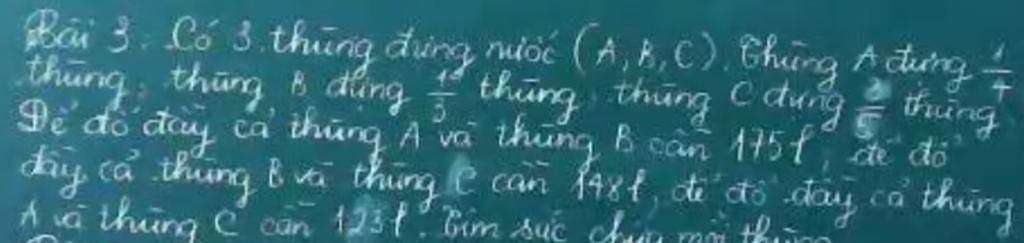 Bài 3: Có 3 thùng đựng nước (A, B, C). Thùng A đựng
thùng, thùng B đựng 1/3 thùng, thùng C đựng thùng
Để đổ đầy cả thùng A và thùng B cần 175l, để đổ
đầy cả thùng B và thùng C cần 148l, để đổ đầy cả thùng
A và thùng C cần 123l. Tìm sức chứa mỗi thùng